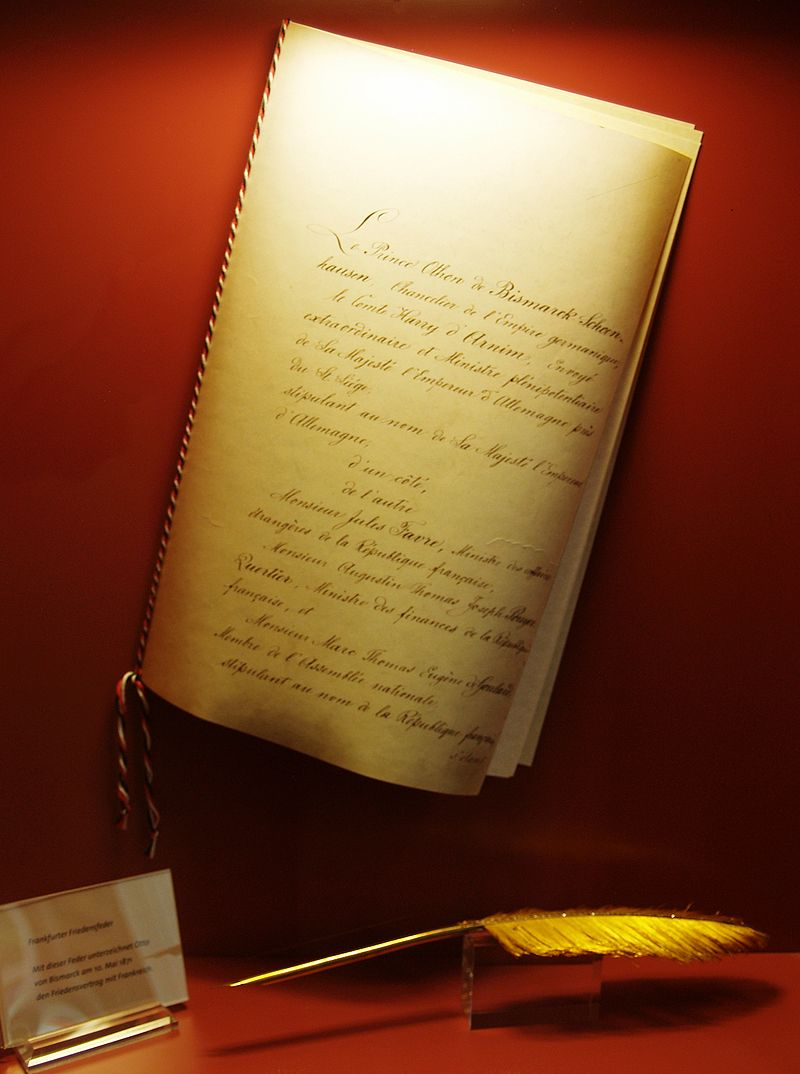 Le Prince Othon de Bismarck Schoen-
hausen, Chancelier de l'Empire germanique,
le Comte Harry d'Arnim, Envoyé
extraordinaire et Ministre plénipotentiaire
de Sa Majesté l'Empereur d'Allemagne près
du St. Siége,
stipulant au nom de Sa Majesté l'Empereur
d'Allemagne,
d'un côté,
de l'autre
Monsieur Jules Favre, Ministre des affaires
étrangères de la République française,
Monsieur Augustin Thomas Joseph Pouyer-
Quertier, Ministre des finances de la République
française, et
Monsieur Marc Thomas Eugène de Goulard
Membre de l'Assemblée nationale,
stipulant au nom de la République française
Frankfurter Friedensfeder
Mit dieser Feder unterzeichnet Otto
von Bismarck am 10. Mai 1871
den Friedensvertrag mit Frankreich.